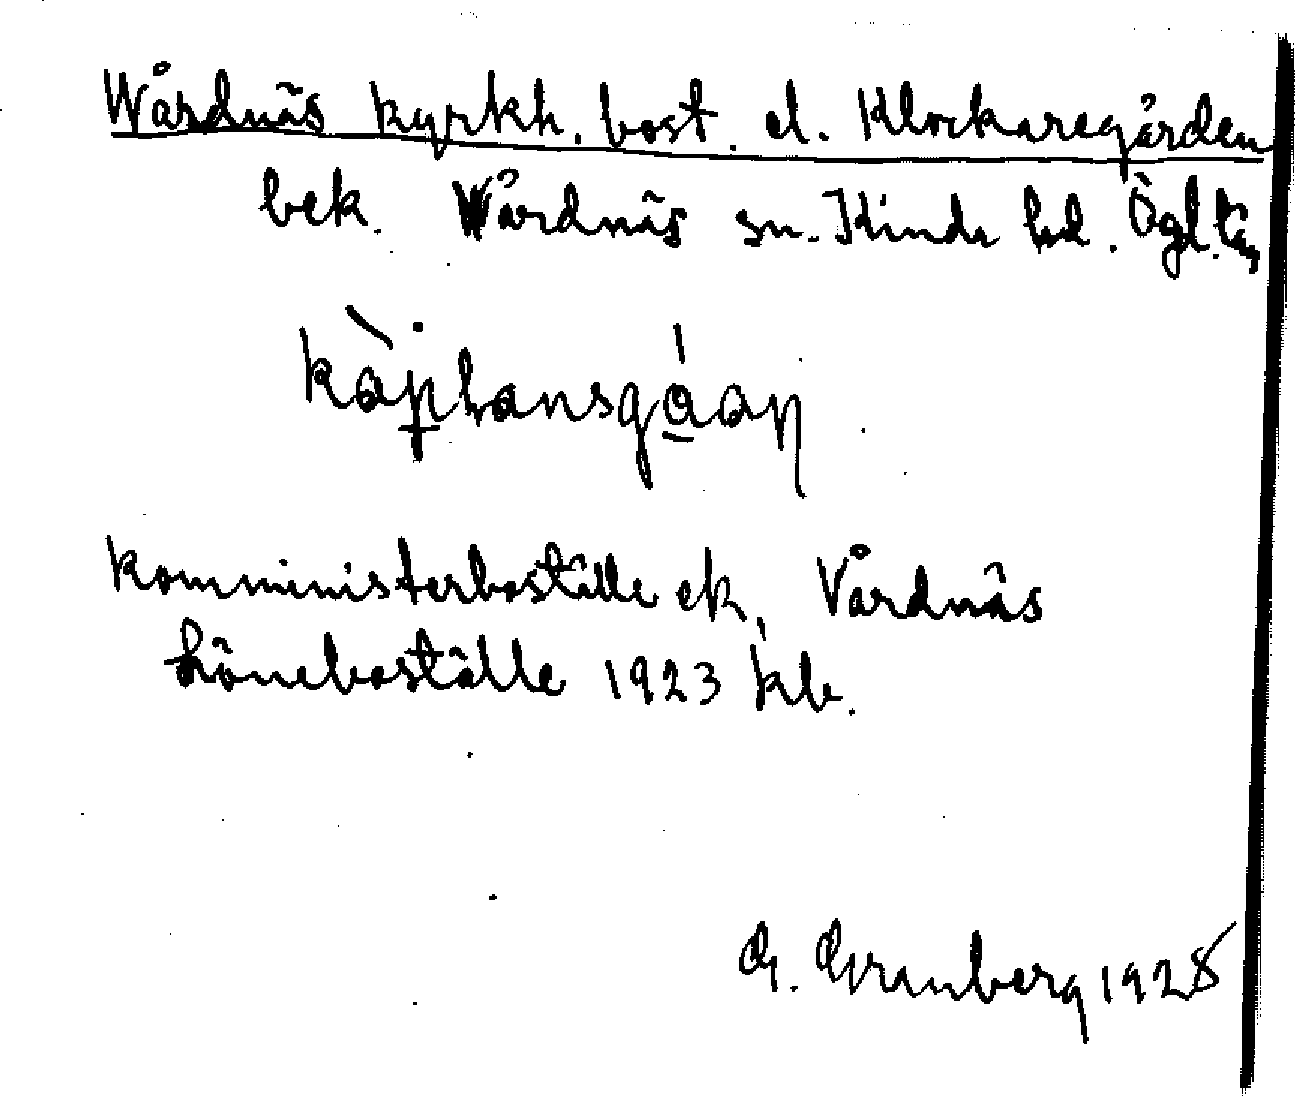 Wårdnäs kyrkh. bost. el. Klockaregården
bek. Wårdnäs sn. Kinds hd. Ögl. län
Komministerboställe ek. Vårdnäs
Löneboställe 1923 kb.
G. Granberg 1928